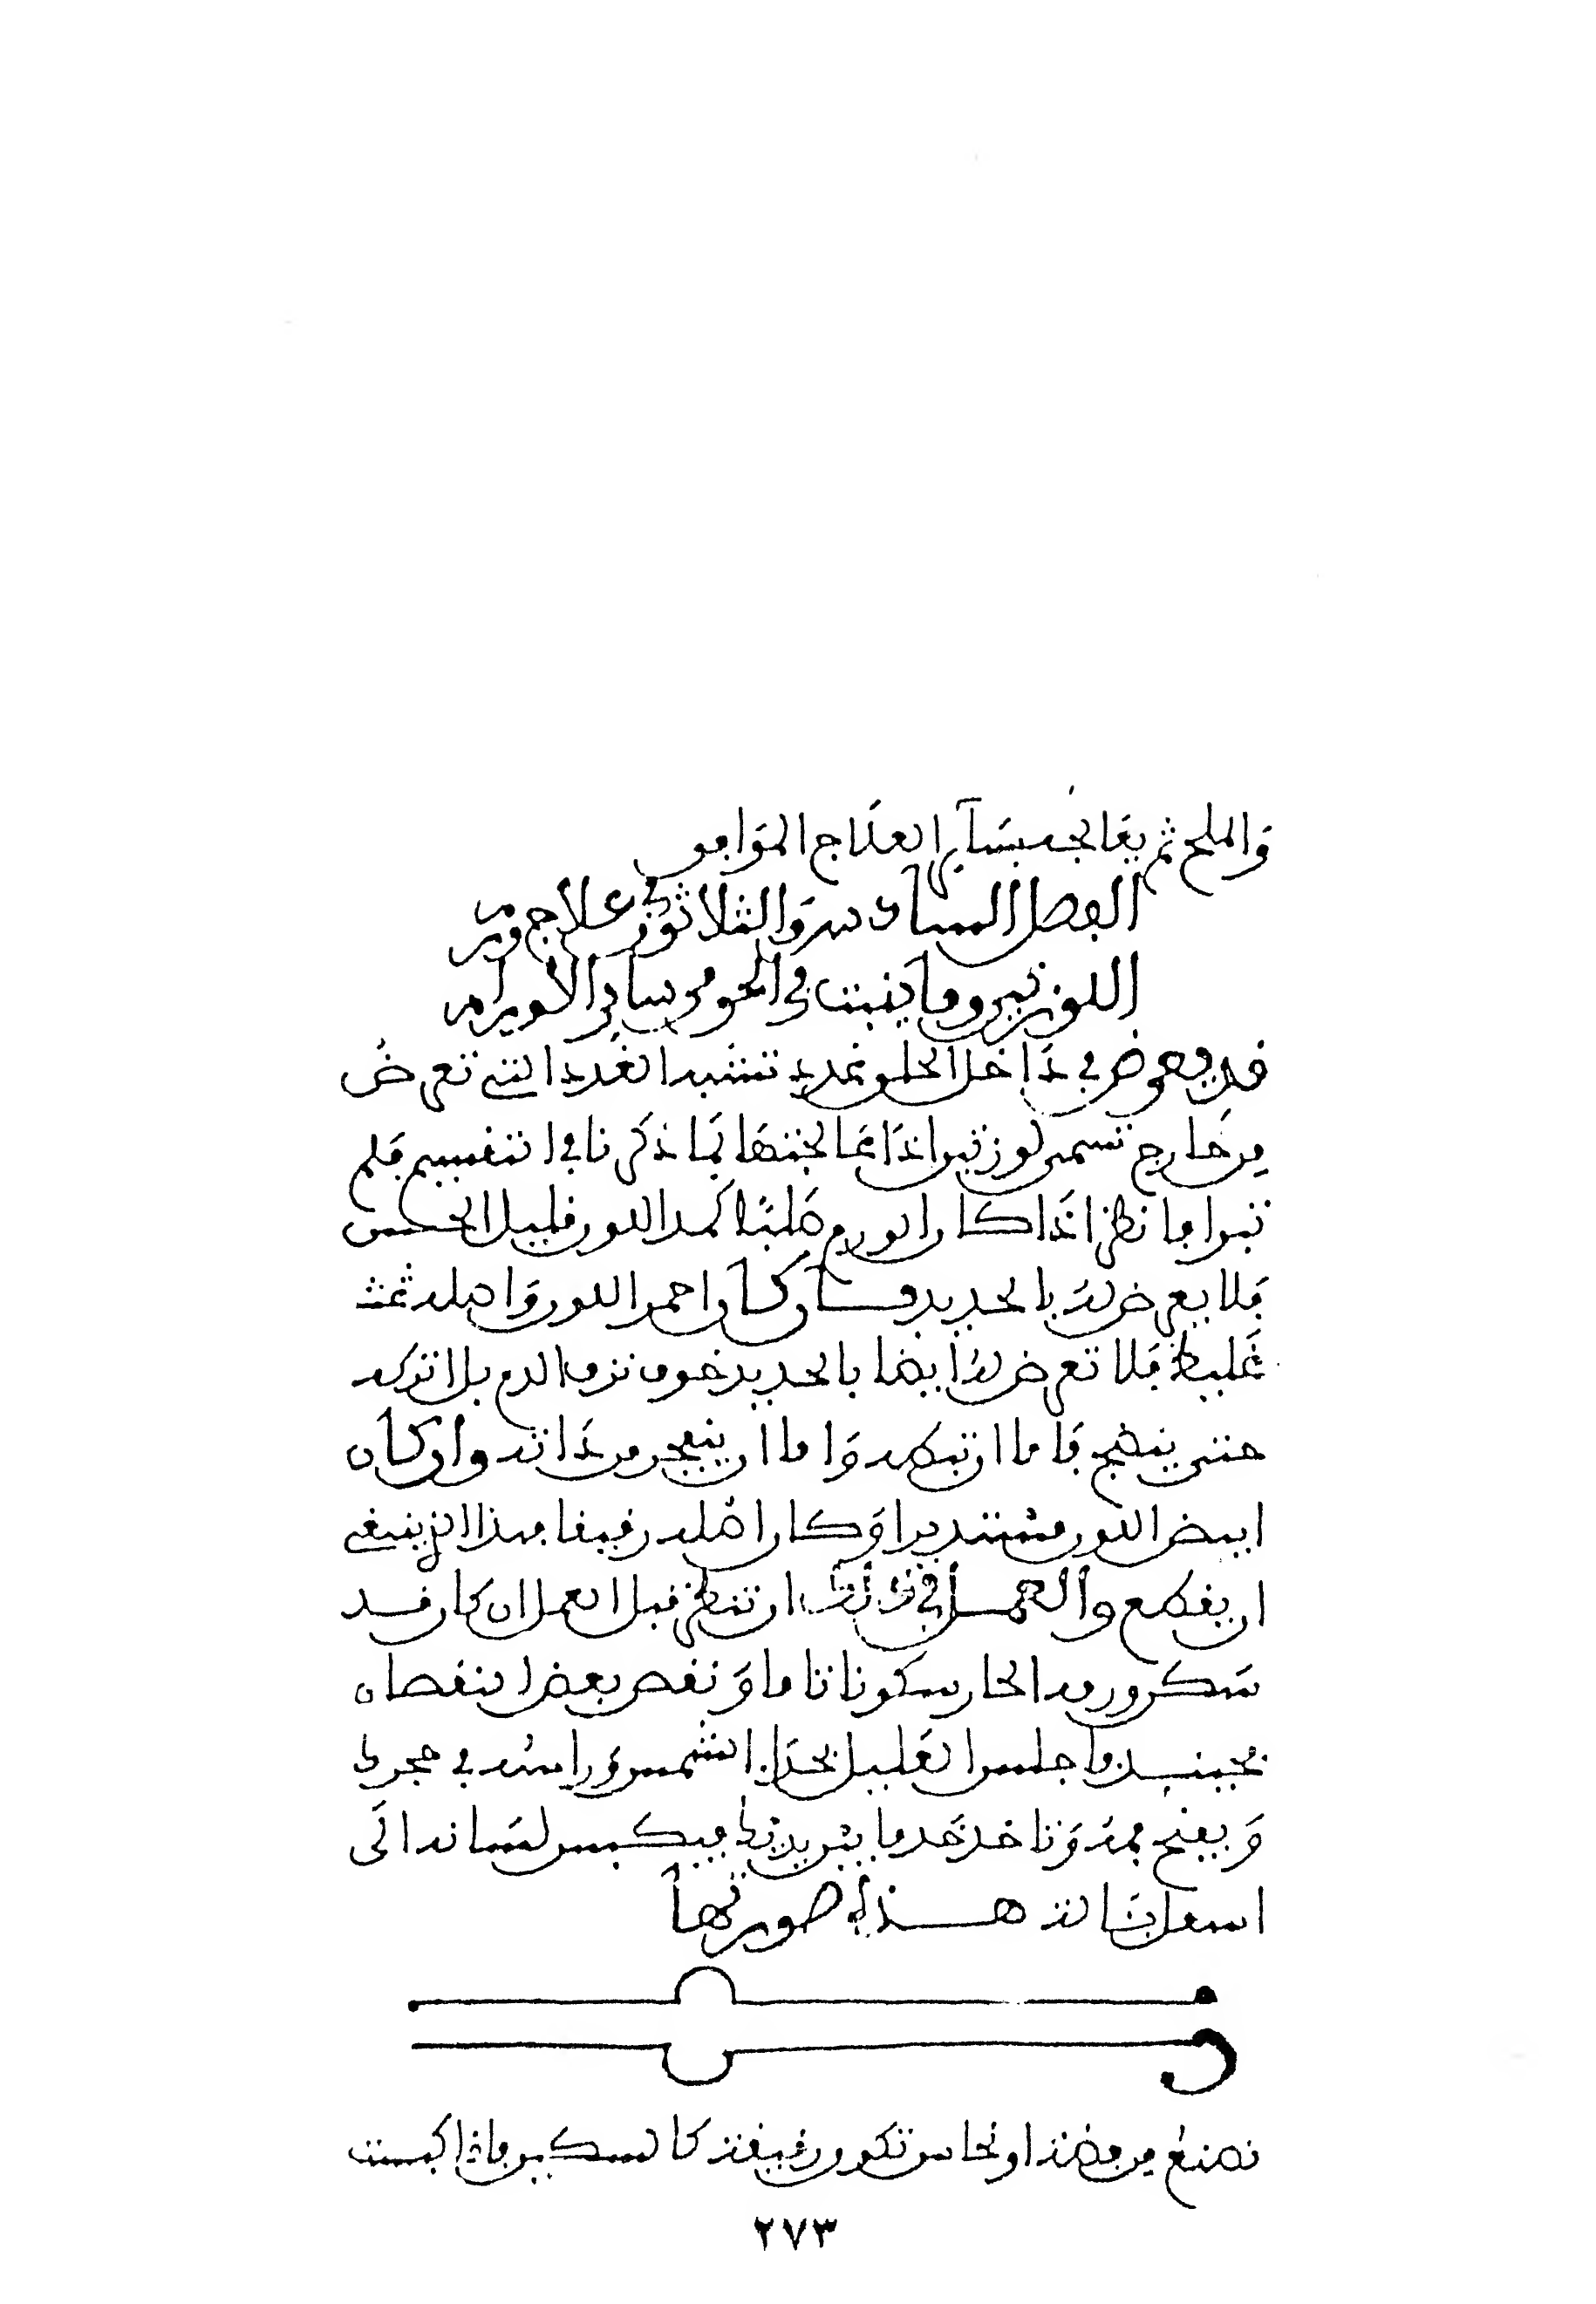 والملح ثم يعالج بسائر العلاج الموافق
الفصل السادس والثلاثون في علاج ورم
اللوزتين وما ينبت في الحلق من سائر الاورام
قد يعرض في داخل الحلق غدد تشبه الغدد التي تعرض
من خارج تسمى لوزتين اذا عالجتها بما ذكرنا في التقسيم فلم
تبرا فانظر اذا كان الورم صلبا كمد اللون قليل الحس
فلا يعرض له بالحديد وان كان احمر اللون واصله
غليظ فلا تعرض له ايضا بالحديد خوف نزف الدم بل اتركه
حتى ينضج فاما ان تبطه واما ان ينفجر من ذاته وان كان
ابيض اللون مستديرا وكان اصله رقيقا فهذا الذي ينبغي
ان يقطع والعمل في ذلك ان تنظر قبل العمل ان كان قد
سكن ورمه الحار سكونا تاما ونقص بعض النقصان
فحينيذ فاجلس العليل بحذاء الشمس وراسه في حجرك
ويفتح فمه وتاخذ خادما بين يديك فيكبس لسانه الى
اسفل بآلة هذه صورتها
تصنع من فضة او نحاس تكون رقيقة كالسكين فاذا كبست
٢٧٣